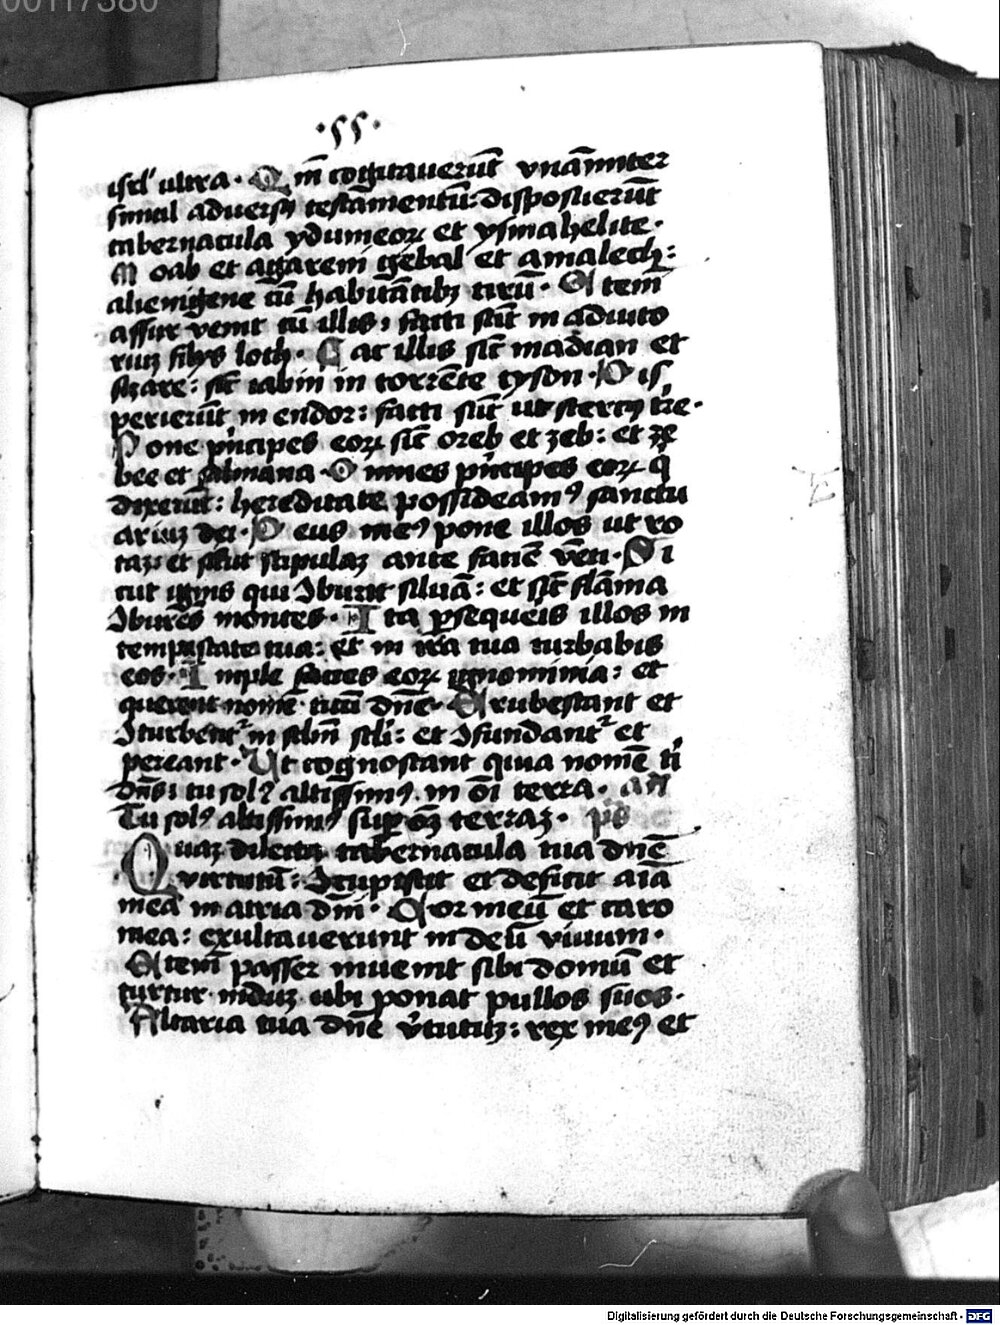 00117380
·55·
isrl' ultra· Qm̄ cogitauerūt vnāimiter
simul aduersꝰ testamentū: disposuerūt
tabernacula ydumeoꝝ et ysmahelite·
Moab et agareni gebal et amalech:
alienigene cū habitātibꝫ tirū· Etem̄
assur venit cū illis: facti sūt in adiuto
riuꝫ filijs loth· Fac illis sic̄ madian et
sizare: sic̄ iabin in torrēte cyson· Dis
perierūt in endor: facti sūt ut stercꝰ tr̄e·
Pone pͥncipes eoꝝ sic̄ oreb et zeb: et ze
bee et salmana· Omnes pͥncipes eoꝝ q̄
dixerūt: hereditate possideamꝰ sanctu
ariuꝫ dei· Deus meꝰ pone illos ut ro
taꝫ: et sicut stipulaꝫ ante faciē vēti· Si
cut ignis qui ꝯburit siluā: et sic̄ flāma
ꝯburēs montes· Ita ꝑsequeris illos in
tempestate tua: et in ira tua turbabis
eos· Imple facies eoꝝ ignominia: et
querent nomē tuū dn̄e· Erubescant et
ꝯturbent᷑ in sclm̄ scli: et ꝯfundant᷑ et
pereant· Ut cognoscant quia nomē ti
dn̄s: tu solꝰ altissimꝰ in oī terra· an̄
Tu solꝰ altissimꝰ suꝑ oēꝫ terraꝫ· ps̄
Quaꝫ dilecta tabernacula tua dn̄e
virtutū: ꝯcupiscit et deficit aīa
mea in atria dn̄i· Cor meū et caro
mea: exultauerunt in deū viuum·
Etem̄ passer inuenit sibi domū et
turtur niduꝫ ubi ponat pullos suos·
Altaria tua dn̄e v̓tutuꝫ: rex meꝰ et
Digitalisierung gefördert durch die Deutsche Forschungsgemeinschaft · DFG